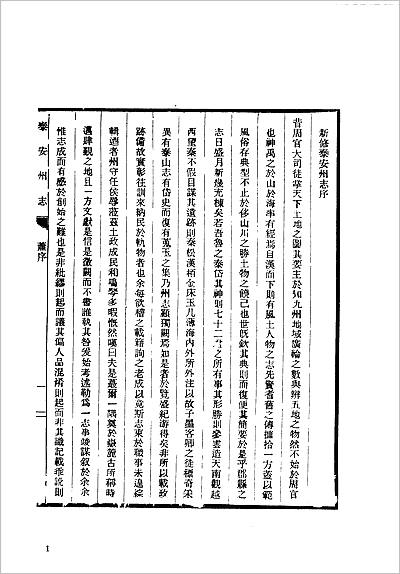 新修泰安州志序
昔周官大司徒掌天下土地之圖其要主於知九州地域廣輪之數與辨五地之物然不始於周官
也神禹之於山於海率有經焉自漢而下則有風土人物之志先賢耆舊之傳攟拾一方蓋以範
風俗存典型不止於侈山川之勝土物之饒已也世旣欽其典則而復便其簡要於是乎郡縣之
志日盛月新幾充棟矣若吾魯之泰岱其神則七十二君之所有事其形勝則參雲造天南觀越
西望秦不假目謀其遺跡則秦松漢栢金床玉几薄海內外所外注以故子墨客卿之徒穚奇朵
異有泰山志有岱史而復有蒐玉之集乃州志顧獨闕焉如是者於覽盛紀游得矣非所以載政
跡備故實彰往訓來納民於軌物者也余每欲檥之載籍詢之老成以竟斯志東於職事未遑綜
輯適者州守任侯辱蒞茲土政成民和鳴琴多暇慨然嘆曰夫是蕞爾一隅奠於嶽麓古所稱時
邁肆觀之地且一方文獻是信是徵闕而不書誰執其咎爰始考述勒爲一志事竣謀敘於余余
惟志成而有感於創始之難也是非紕繆則起而議其傷人品混淆則起而非其識記載乖說則
泰安州志
蕭序
一
1